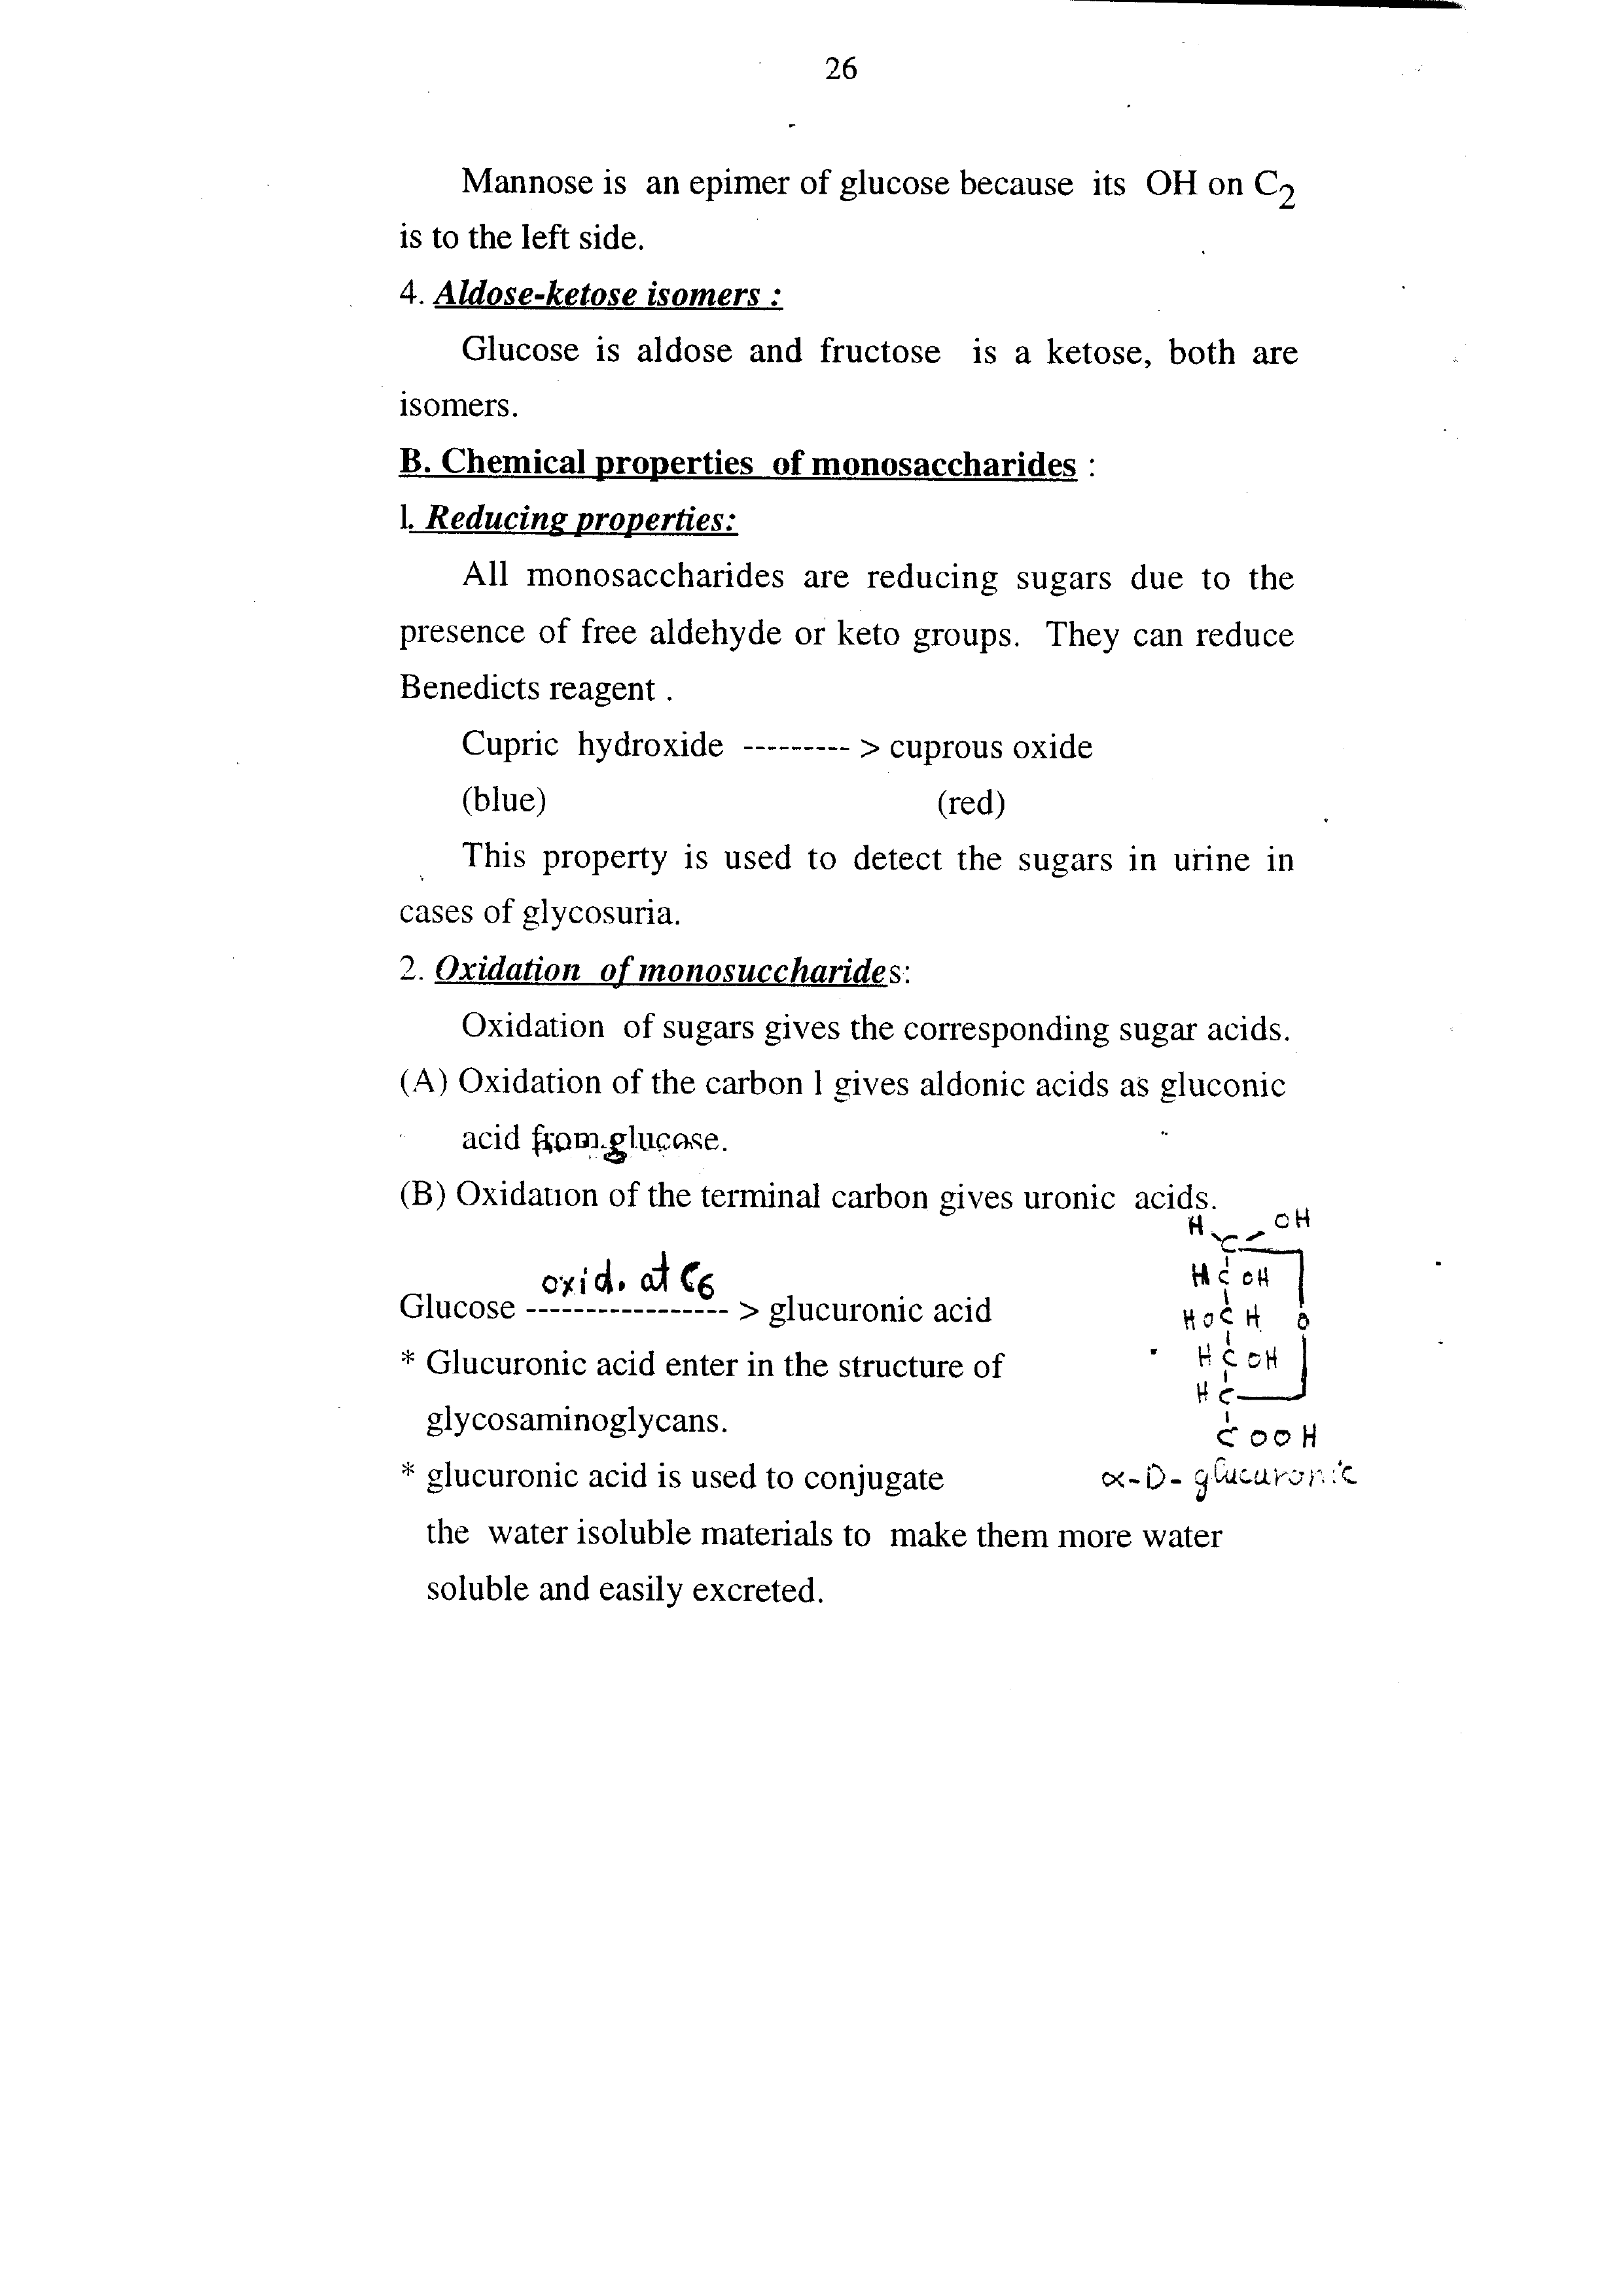 26
Mannose is an epimer of glucose because its OH on C2
is to the left side.
4. Aldose-ketose isomers :
Glucose is aldose and fructose is a ketose, both are
isomers.
B. Chemical properties of monosaccharides :
1. Reducing properties:
All monosaccharides are reducing sugars due to the
presence of free aldehyde or keto groups. They can reduce
Benedicts reagent .
Cupric hydroxide --------- > cuprous oxide
(blue) (red)
This property is used to detect the sugars in urine in
cases of glycosuria.
2. Oxidation of monosuccharides:
Oxidation of sugars gives the corresponding sugar acids.
(A) Oxidation of the carbon 1 gives aldonic acids as gluconic
acid from glucose.
(B) Oxidation of the terminal carbon gives uronic acids.
oxid. at C6
Glucose ----------------- > glucuronic acid
* Glucuronic acid enter in the structure of
glycosaminoglycans.
* glucuronic acid is used to conjugate
the water isoluble materials to make them more water
soluble and easily excreted.
H OH
C
H C OH
HO C H O
H C OH
H C
COOH
α-D- glucuronic